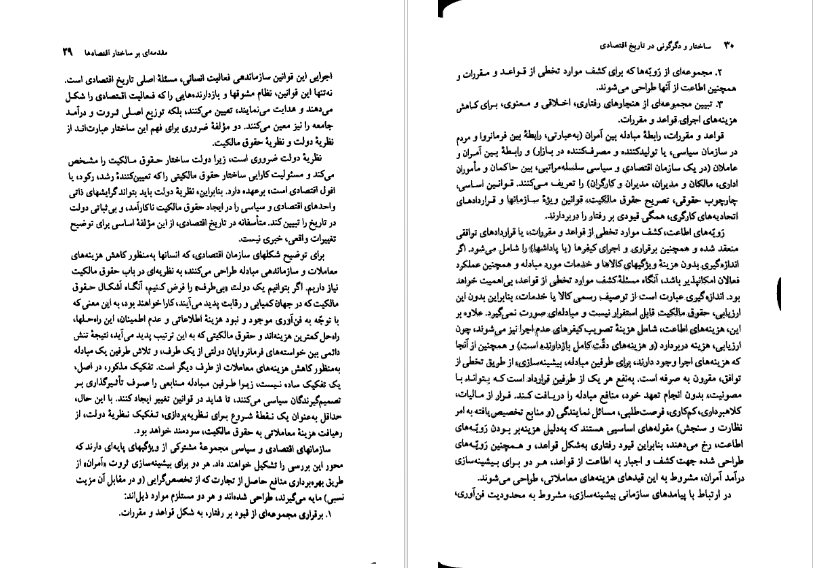 مقدمه‌ای بر ساختار اقتصادها ۲۹
اجرایی این قوانین سازماندهی فعالیت انسانی، مسئلهٔ اصلی تاریخ اقتصادی است.
نه‌تنها این قوانین، نظام مشوقها و بازدارنده‌هایی را که فعالیت اقتصادی را شکل
می‌دهند و هدایت می‌نمایند، تعیین می‌کنند، بلکه توزیع اصلی ثروت و درآمد
جامعه را نیز معین می‌کنند. دو مؤلفهٔ ضروری برای فهم این ساختار عبارت‌اند از
نظریهٔ دولت و نظریهٔ حقوق مالکیت.
نظریهٔ دولت ضروری است، زیرا دولت ساختار حقوق مالکیت را مشخص
می‌کند و مسئولیت کارایی ساختار حقوق مالکیتی را که تعیین‌کنندهٔ رشد، رکود، یا
افول اقتصادی است، برعهده دارد. بنابراین، نظریهٔ دولت باید بتواند گرایشهای ذاتی
واحدهای اقتصادی و سیاسی را در ایجاد حقوق مالکیت ناکارآمد، و بی‌ثباتی دولت
در تاریخ را تبیین کند. متأسفانه در تاریخ اقتصادی، از این مؤلفهٔ اساسی برای توضیح
تغییرات واقعی، خبری نیست.
برای توضیح شکلهای سازمان اقتصادی، که انسانها به‌منظور کاهش هزینه‌های
معاملات و سازماندهی مبادله طراحی می‌کنند، به نظریه‌ای در باب حقوق مالکیت
نیاز داریم. اگر بتوانیم یک دولت «بی‌طرف» را فرض کنیم، آنگاه أشکال حقوق
مالکیت که در جهان کمیابی و رقابت پدید می‌آیند، کارا خواهند بود، به این معنی که
با توجّه به فن‌آوری موجود و نبود هزینهٔ اطلاعاتی و عدم اطمینان، این راه‌حلها،
راه‌حل کمترین هزینه‌اند و حقوق مالکیتی که به این ترتیب پدید می‌آید، نتیجهٔ تنش
دائمی بین خواسته‌های فرمانروایان دولتی از یک طرف، و تلاش طرفین یک مبادله
به‌منظور کاهش هزینه‌های معاملات از طرف دیگر است. تفکیک مذکور، در اصل،
یک تفکیک ساده نیست، زیرا طرفین مبادله منابعی را صرف تأثیرگذاری بر
تصمیم‌گیرندگان سیاسی می‌کنند، تا شاید در قوانین تغییر ایجاد کنند. با این حال،
حداقل به‌عنوان یک نقطهٔ شروع برای نظریه‌پردازی، تفکیک نظریهٔ دولت، از
رهیافت هزینهٔ معاملاتی به حقوق مالکیت، سودمند خواهد بود.
سازمانهای اقتصادی و سیاسی مجموعهٔ مشترکی از ویژگیهای پایه‌ای دارند که
محور این بررسی را تشکیل خواهند داد. هر دو برای بیشینه‌سازی ثروت «آمران» از
طریق بهره‌برداری منافع حاصل از تجارت که از تخصص‌گرایی (و در مقابل آن مزیت
نسبی) مایه می‌گیرند، طراحی شده‌اند و هر دو مستلزم موارد ذیل‌اند:
۱. برقراری مجموعه‌ای از قیود بر رفتار، به شکل قواعد و مقررات.
۳۰ ساختار و دگرگونی در تاریخ اقتصادی
۲. مجموعه‌ای از رَویّه‌ها که برای کشف موارد تخطی از قواعد و مقررات و
همچنین اطاعت از آنها طراحی می‌شوند.
۳. تبیین مجموعه‌ای از هنجارهای رفتاری، اخلاقی و معنوی، برای کاهش
هزینه‌های اجرای قواعد و مقررات.
قواعد و مقررات، رابطهٔ مبادله بین آمران (به‌عبارتی، رابطهٔ بین فرمانروا و مردم
در سازمان سیاسی، یا تولیدکننده و مصرف‌کننده در بازار) و رابطهٔ بین آمران و
عاملان (در یک سازمان اقتصادی و سیاسی سلسله‌مراتبی، بین حاکمان و مأموران
اداری، مالکان و مدیران، مدیران و کارگران) را تعریف می‌کنند. قوانین اساسی،
چارچوب حقوقی، تصریح حقوق مالکیت، قوانین ویژهٔ سازمانها و قراردادهای
اتحادیه‌های کارگری، همگی قیودی بر رفتار را دربردارند.
رَویّه‌های اطاعت، کشف موارد تخطی از قواعد و مقررات، یا قراردادهای توافقی
منعقد شده و همچنین برقراری و اجرای کیفرها (یا پاداشها) را شامل می‌شود. اگر
اندازه‌گیری بدون هزینهٔ ویژگیهای کالاها و خدمات مورد مبادله و همچنین عملکرد
فعالان امکانپذیر باشد، آنگاه مسئلهٔ کشف موارد تخطی از قواعد، بی‌اهمیت خواهد
بود. اندازه‌گیری عبارت است از توصیف رسمی کالا یا خدمات، بنابراین بدون این
ارزیابی، حقوق مالکیت قابل استقرار نیست و مبادله‌ای صورت نمی‌گیرد. علاوه بر
این، هزینه‌های اطاعت، شامل هزینهٔ تصویب کیفرهای عدم اجرا نیز می‌شوند، چون
ارزیابی، هزینه دربردارد (و هزینه‌های دقّتِ کامل بازدارنده‌است) و همچنین از آنجا
که هزینه‌های اجرا وجود دارند، برای طرفین مبادله، بیشینه‌سازی، از طریق تخطی از
توافق، مقرون به صرفه است. به‌نفع هر یک از طرفین قرارداد است که بتواند با
مصونیت، بدون انجام تعهد خود، منافع مبادله را دریافت کند. فرار از مالیات،
کلاهبرداری، کم‌کاری، فرصت‌طلبی، مسائل نمایندگی (و منابع تخصیص‌یافته به امر
نظارت و سنجش) مقوله‌های اساسیی هستند که به‌دلیل هزینه‌بر بودن رَویّه‌های
اطاعت، رخ می‌دهند، بنابراین قیود رفتاری به‌شکل قواعد، و همچنین رَویّه‌های
طراحی شده جهت کشف و اجبار به اطاعت از قواعد، هر دو برای بیشینه‌سازی
درآمد آمران، مشروط به این قیدهای هزینه‌های معاملاتی، طراحی می‌شوند.
در ارتباط با پیامدهای سازمانی بیشینه‌سازی، مشروط به محدودیت فن‌آوری،